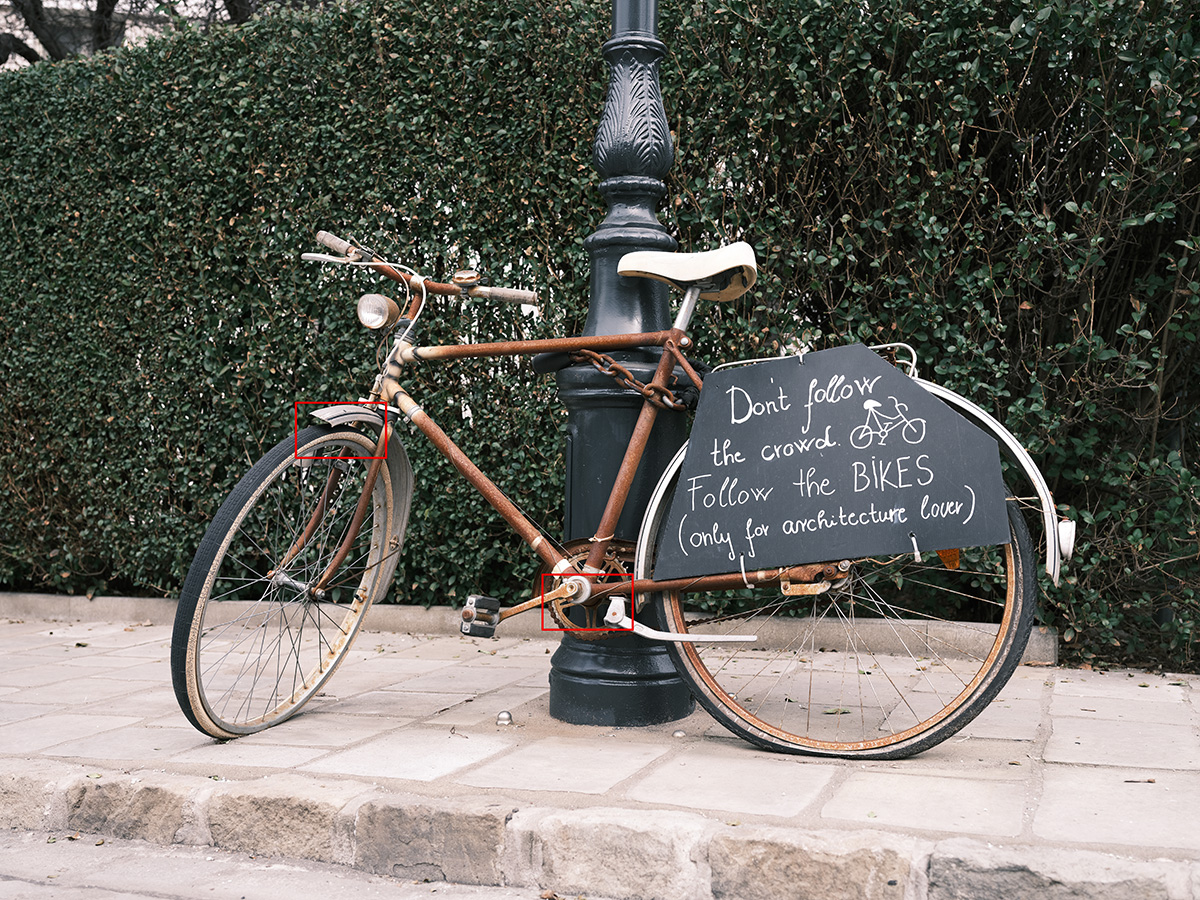 Don't follow
the crowd.
Follow the BiKES
(only for architecture lover)